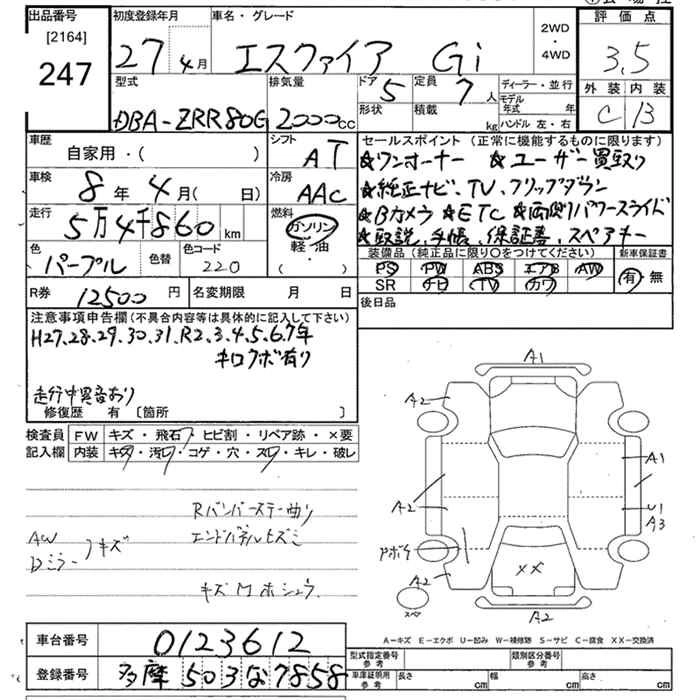 出品番号
[2164]
247
初度登録年月
27 4月
車名・グレード
エスクァイア Gi
2WD
4WD
評価点
3,5
外装 内装
C B
型式
DBA-ZRR80G
排気量
2000cc
ドア 5
形状
定員 7人
積載 kg
ディーラー・並行
モデル年式 年
ハンドル 左・右
車歴
自家用・( )
シフト
AT
車検
8年 4月( 日)
冷房
AAC
走行
5万4千860km
燃料
ガソリン
軽・油
・( )
色
パープル
色替
色コード
220
R券 12500円
名変期限 月 日
セールスポイント (正常に機能するものに限ります)
☆ワンオーナー ☆ユーザー買取り
☆純正ナビ、TV、フリップダウン
☆Bカメラ ☆ETC ☆両側パワースライド
☆取説、手帳、保証書、スペアキー
装備品 (純正品に限り○をつけてください)
PS PW ABS エアB AW
SR ナビ TV カワ
新車保証書
有・無
後日品
注意事項申告欄(不具合内容等は具体的に記入して下さい)
H27.28.29.30.31.R2.3.4.5.6.7年
キロクボ有り
走行中異音おり
修復歴 有 〔箇所 〕
検査員記入欄
FW キズ・飛石・ヒビ割・リペア跡・×要
内装 キズ・汚れ・コゲ・穴・スレ・キレ・破レ
Rバンパーステー曲り
AW
Dミラー キズ
エンドパネルヒズミ
キズ M ホシュウ
A1
A2
A1
A2
U1
A3
Pボケ
A2
××
スペア
A2
A-キズ E-エクボ U-凹み W-補修跡 S-サビ C-腐食 XX-交換済
車台番号 0123612
登録番号 多摩 503 な 7858
型式指定番号 参考
類別区分番号 参考
車庫証明用 参考
長さ cm
幅 cm
高さ cm